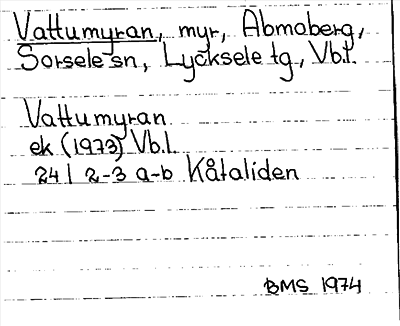 Vattumyran, myr, Abmoberg,
Sorsele sn, Lycksele tg, Vb.l.
Vattumyran
ek (1973) Vb.l.
24 I 2-3 a-b Kåtaliden
BMS 1974